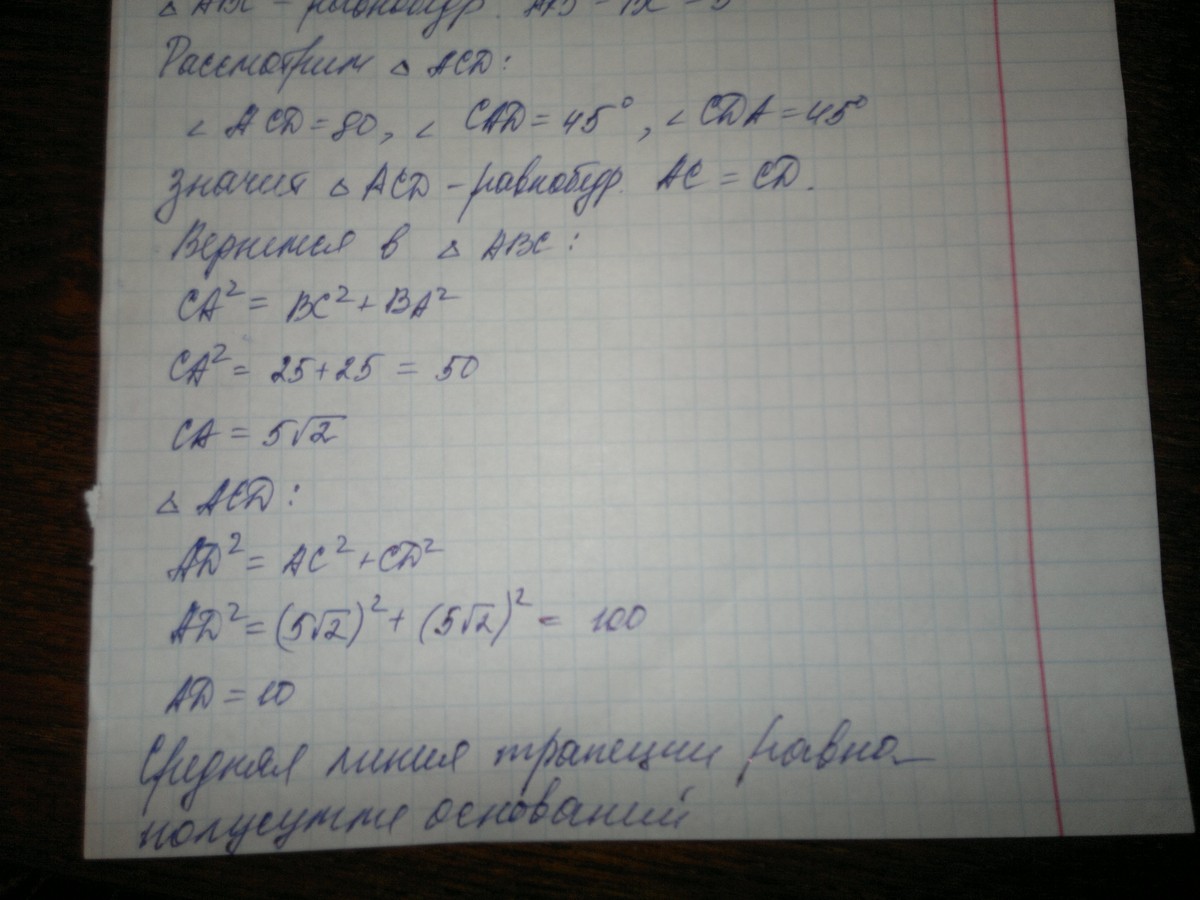 △ ABC - равнобедр. AB = BC = 5
Рассмотрим △ ACD:
∠ ACD = 90, ∠ CAD = 45°, ∠ CDA = 45°
значит △ ACD - равнобедр. AC = CD.
Вернемся в △ ABC:
CA² = BC² + BA²
CA² = 25 + 25 = 50
CA = 5√2
△ ACD:
AD² = AC² + CD²
AD² = (5√2)² + (5√2)² = 100
AD = 10
Средняя линия трапеции равна
полусумме оснований